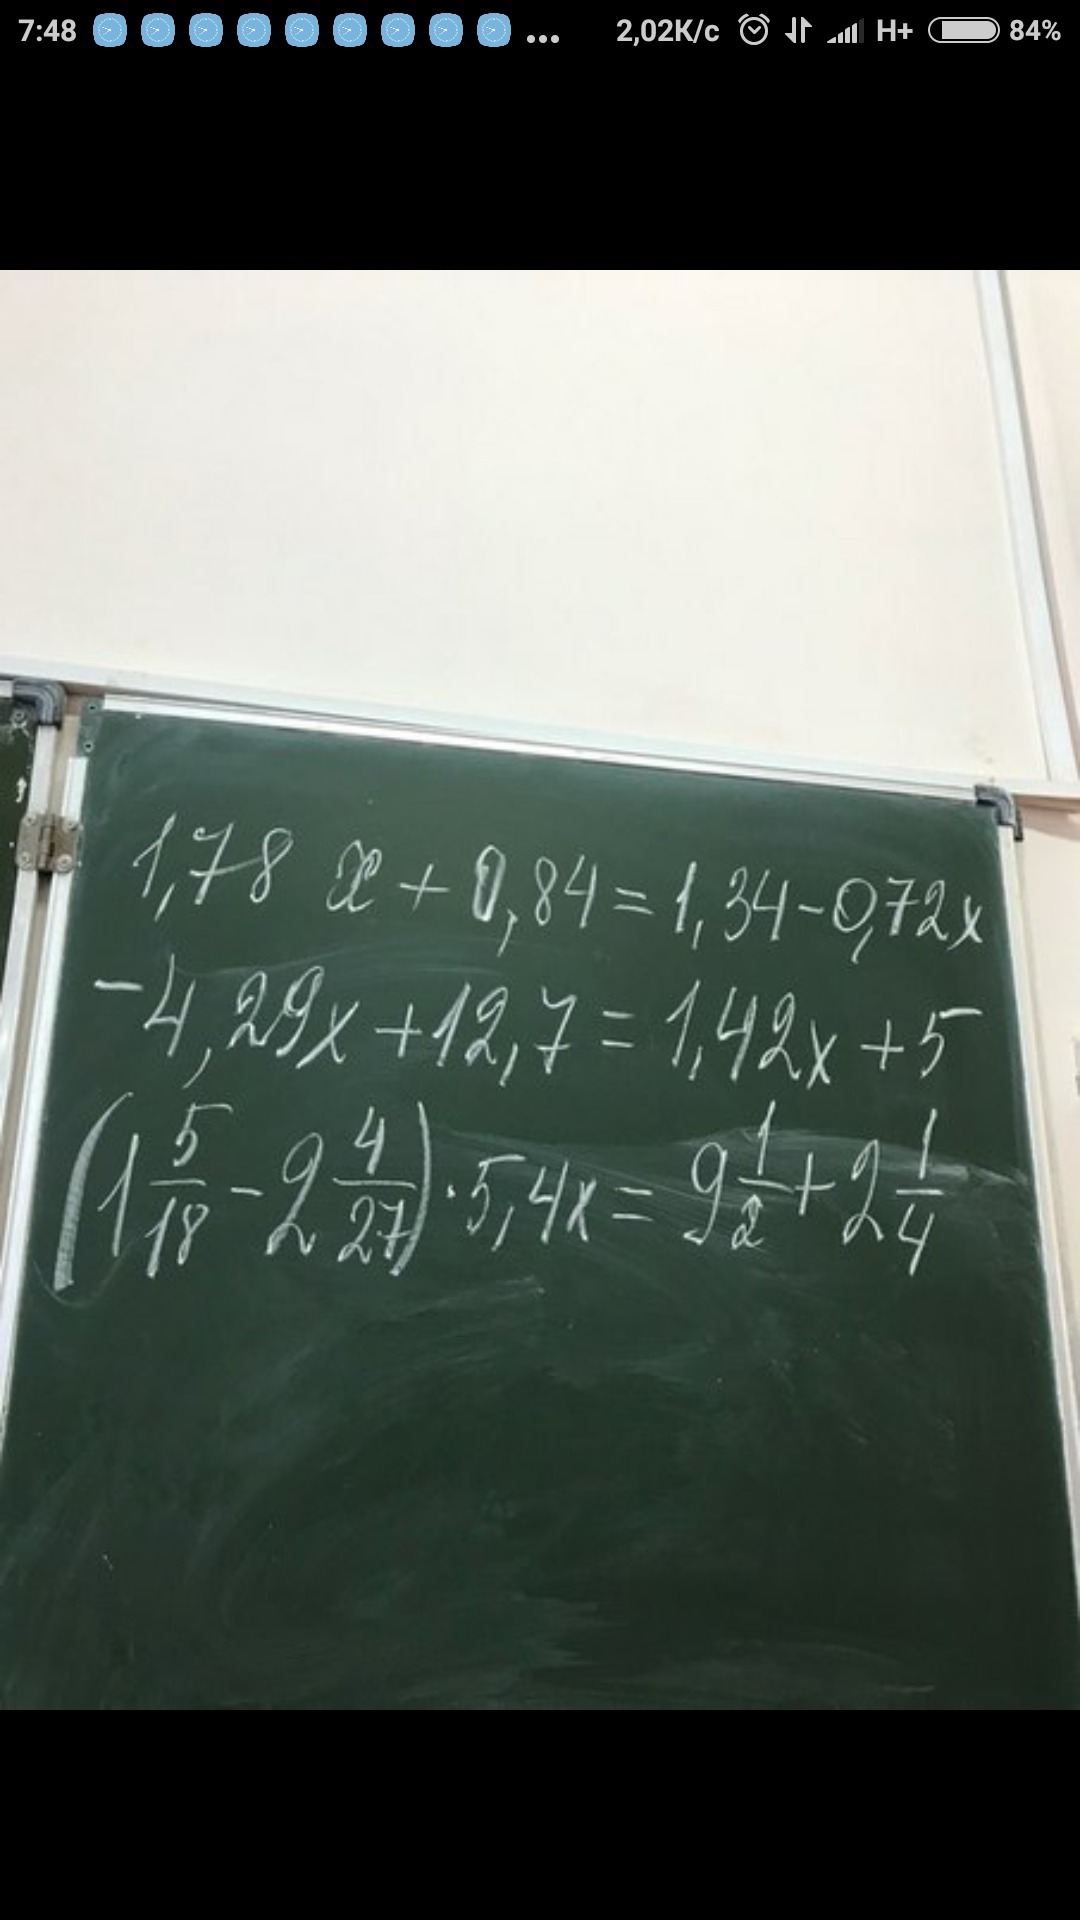 7:48 ... 2,02K/c H+ 84%
1,78 x + 0,84 = 1,34 - 0,72x
-4,29x + 12,7 = 1,42x + 5
(1 5/18 - 2 4/27) · 5,4x = 9 1/2 + 2 1/4